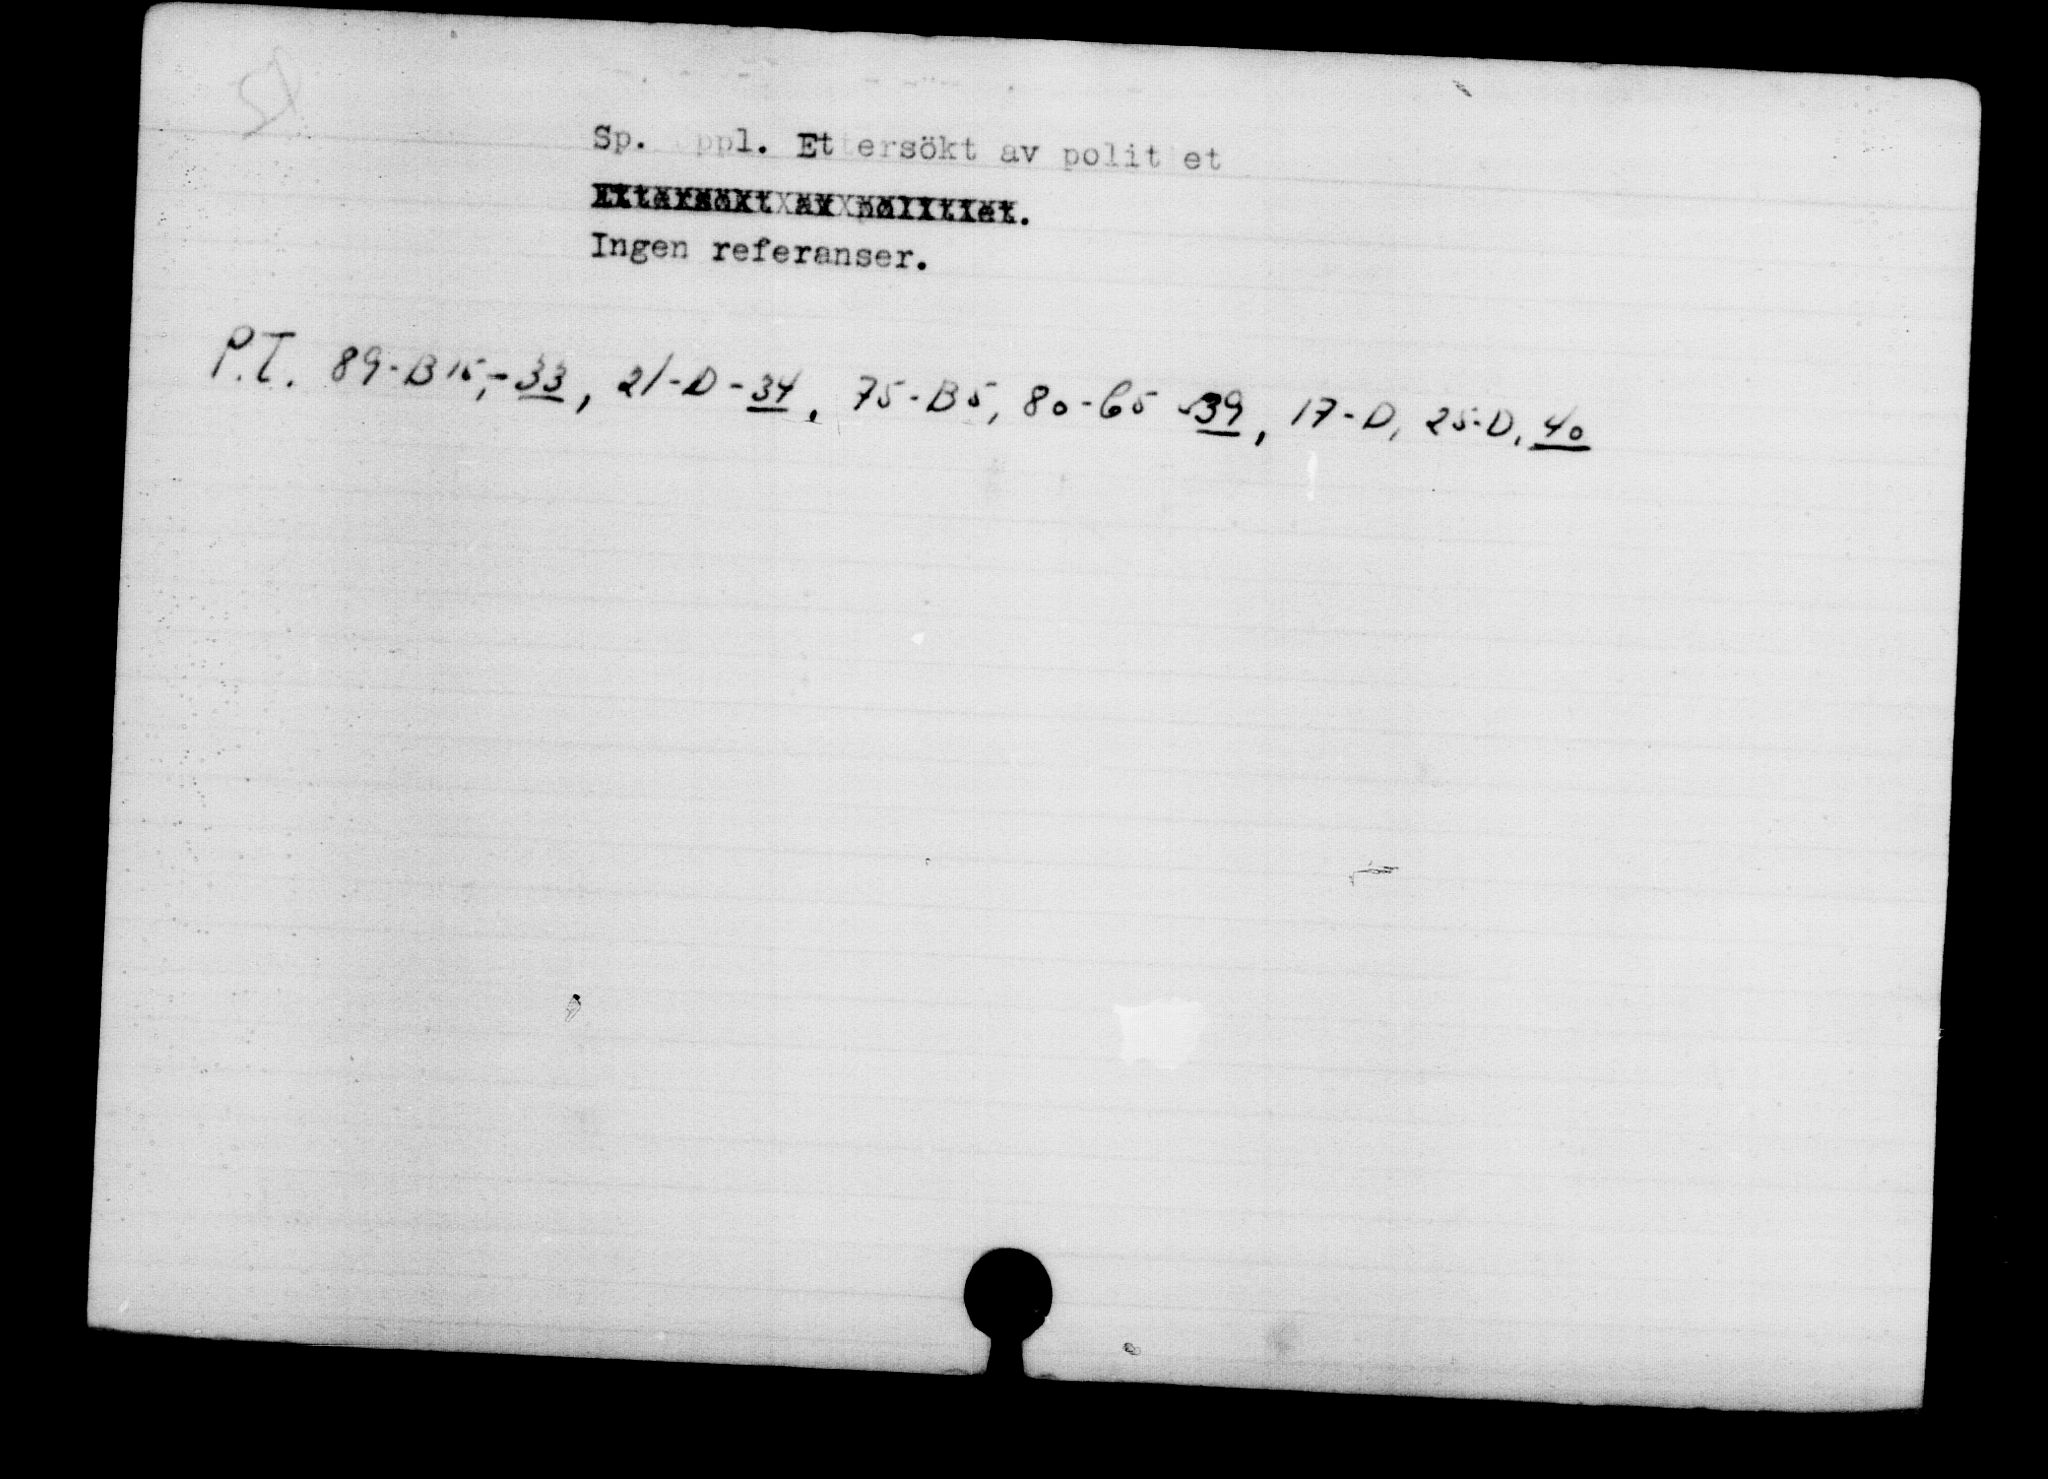 Sp. ppl. Ettersökt av polit et
Ettersökt av politiet.
Ingen referanser.
P.T. 89-B15,-33, 21-D-34, 75-B5, 80-65-39, 17-D, 25-D, 40